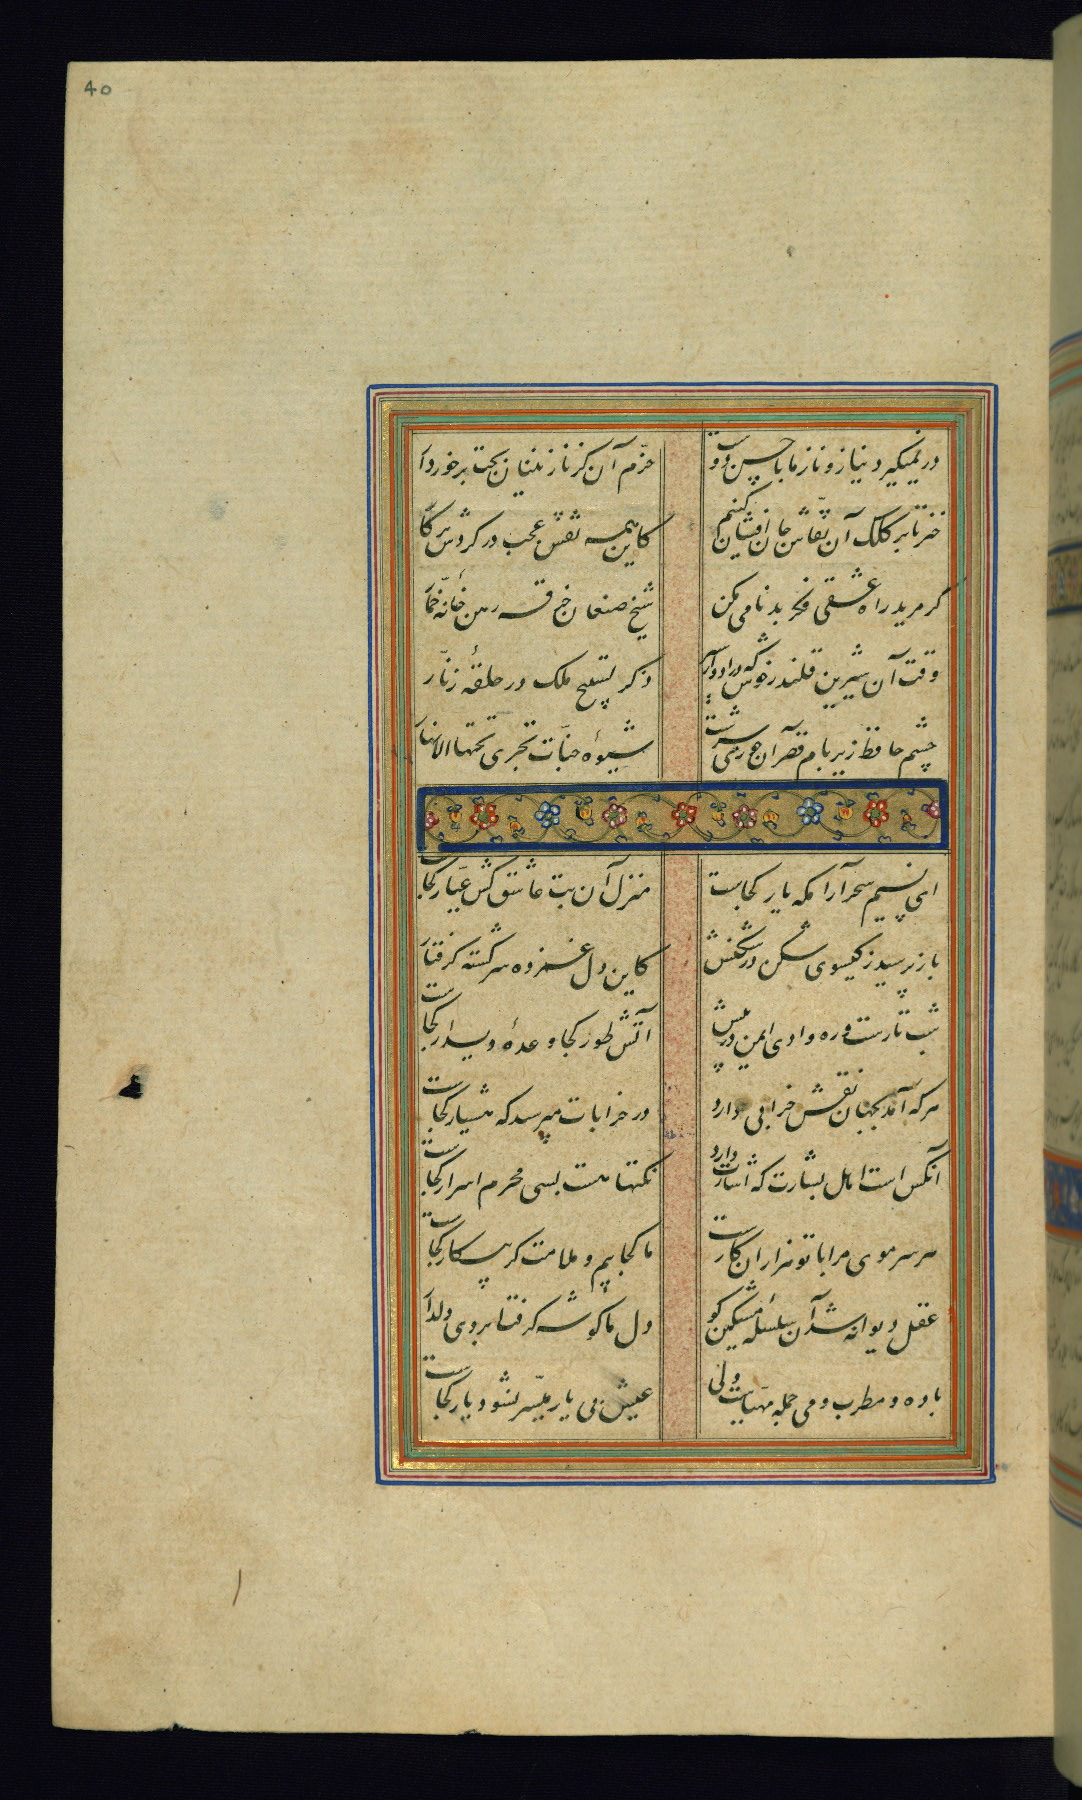 40
در نمیگیرد نیاز و ناز ما با حسن دوست خرّم آن کز نازنینان بخت برخوردا
خیز تا بر کلک آن نقاش جان افشان کنیم کاین همه نقش عجب در گردش پرگا
گر مرید راه عشقی فکر بدنامی مکن شیخ صنعان خرقه رهن خانهٔ خمّا
وقت آن شیرین قلندر خوش که در ادوار ذکر تسبیح ملک در حلقهٔ زنّار
چشم حافظ زیر بام قصر آن حوری سرشت شیوهٔ جنّات تجری تحتها الانها
ای نسیم سحر آرامگه یار کجاست منزل آن بت عاشق کش عیّار کجاست
باز پرسید ز گیسوی شکن در شکنش کاین دل غمزده سرگشته گرفتا
شب تارست و ره وادی ایمن در پیش آتش طور کجا وعدهٔ دیدار کجاست
هر که آمد بجهان نقش خرابی دارد در خرابات مپرسید که هشیار کجاست
آنکس است اهل بشارت که اشارت دارد نکتها هست بسی محرم اسرار کجاست
هر سر موی مرا با تو هزاران کارست ما کجاییم و ملامت گر بیکار کجاست
عقل دیوانه شد آن سلسلهٔ مشکین کو دل ما گوشه گرفت ابروی دلدا
باده و مطرب و می جمله مهیاست ولی عیش بی یار میسّر نشود یار کجاست